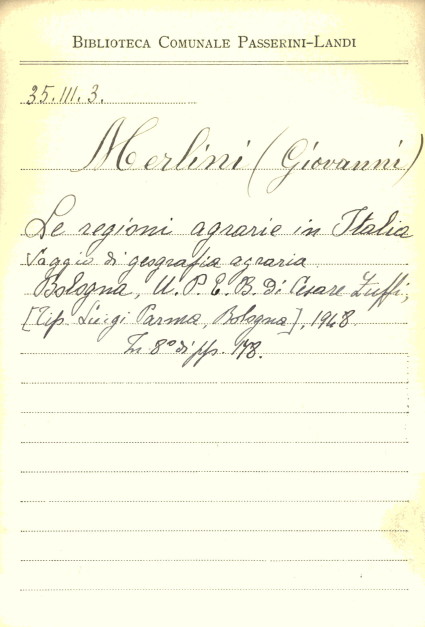 BIBLIOTECA COMUNALE PASSERINI-LANDI
35.III.3.
Merlini (Giovanni)
Le regioni agrarie in Italia
Saggio di geografia agraria
Bologna, U. P. E. B. di Cesare Zuffi,
[Tip. Luigi Parma, Bologna], 1948
In 8° di pp. 178.